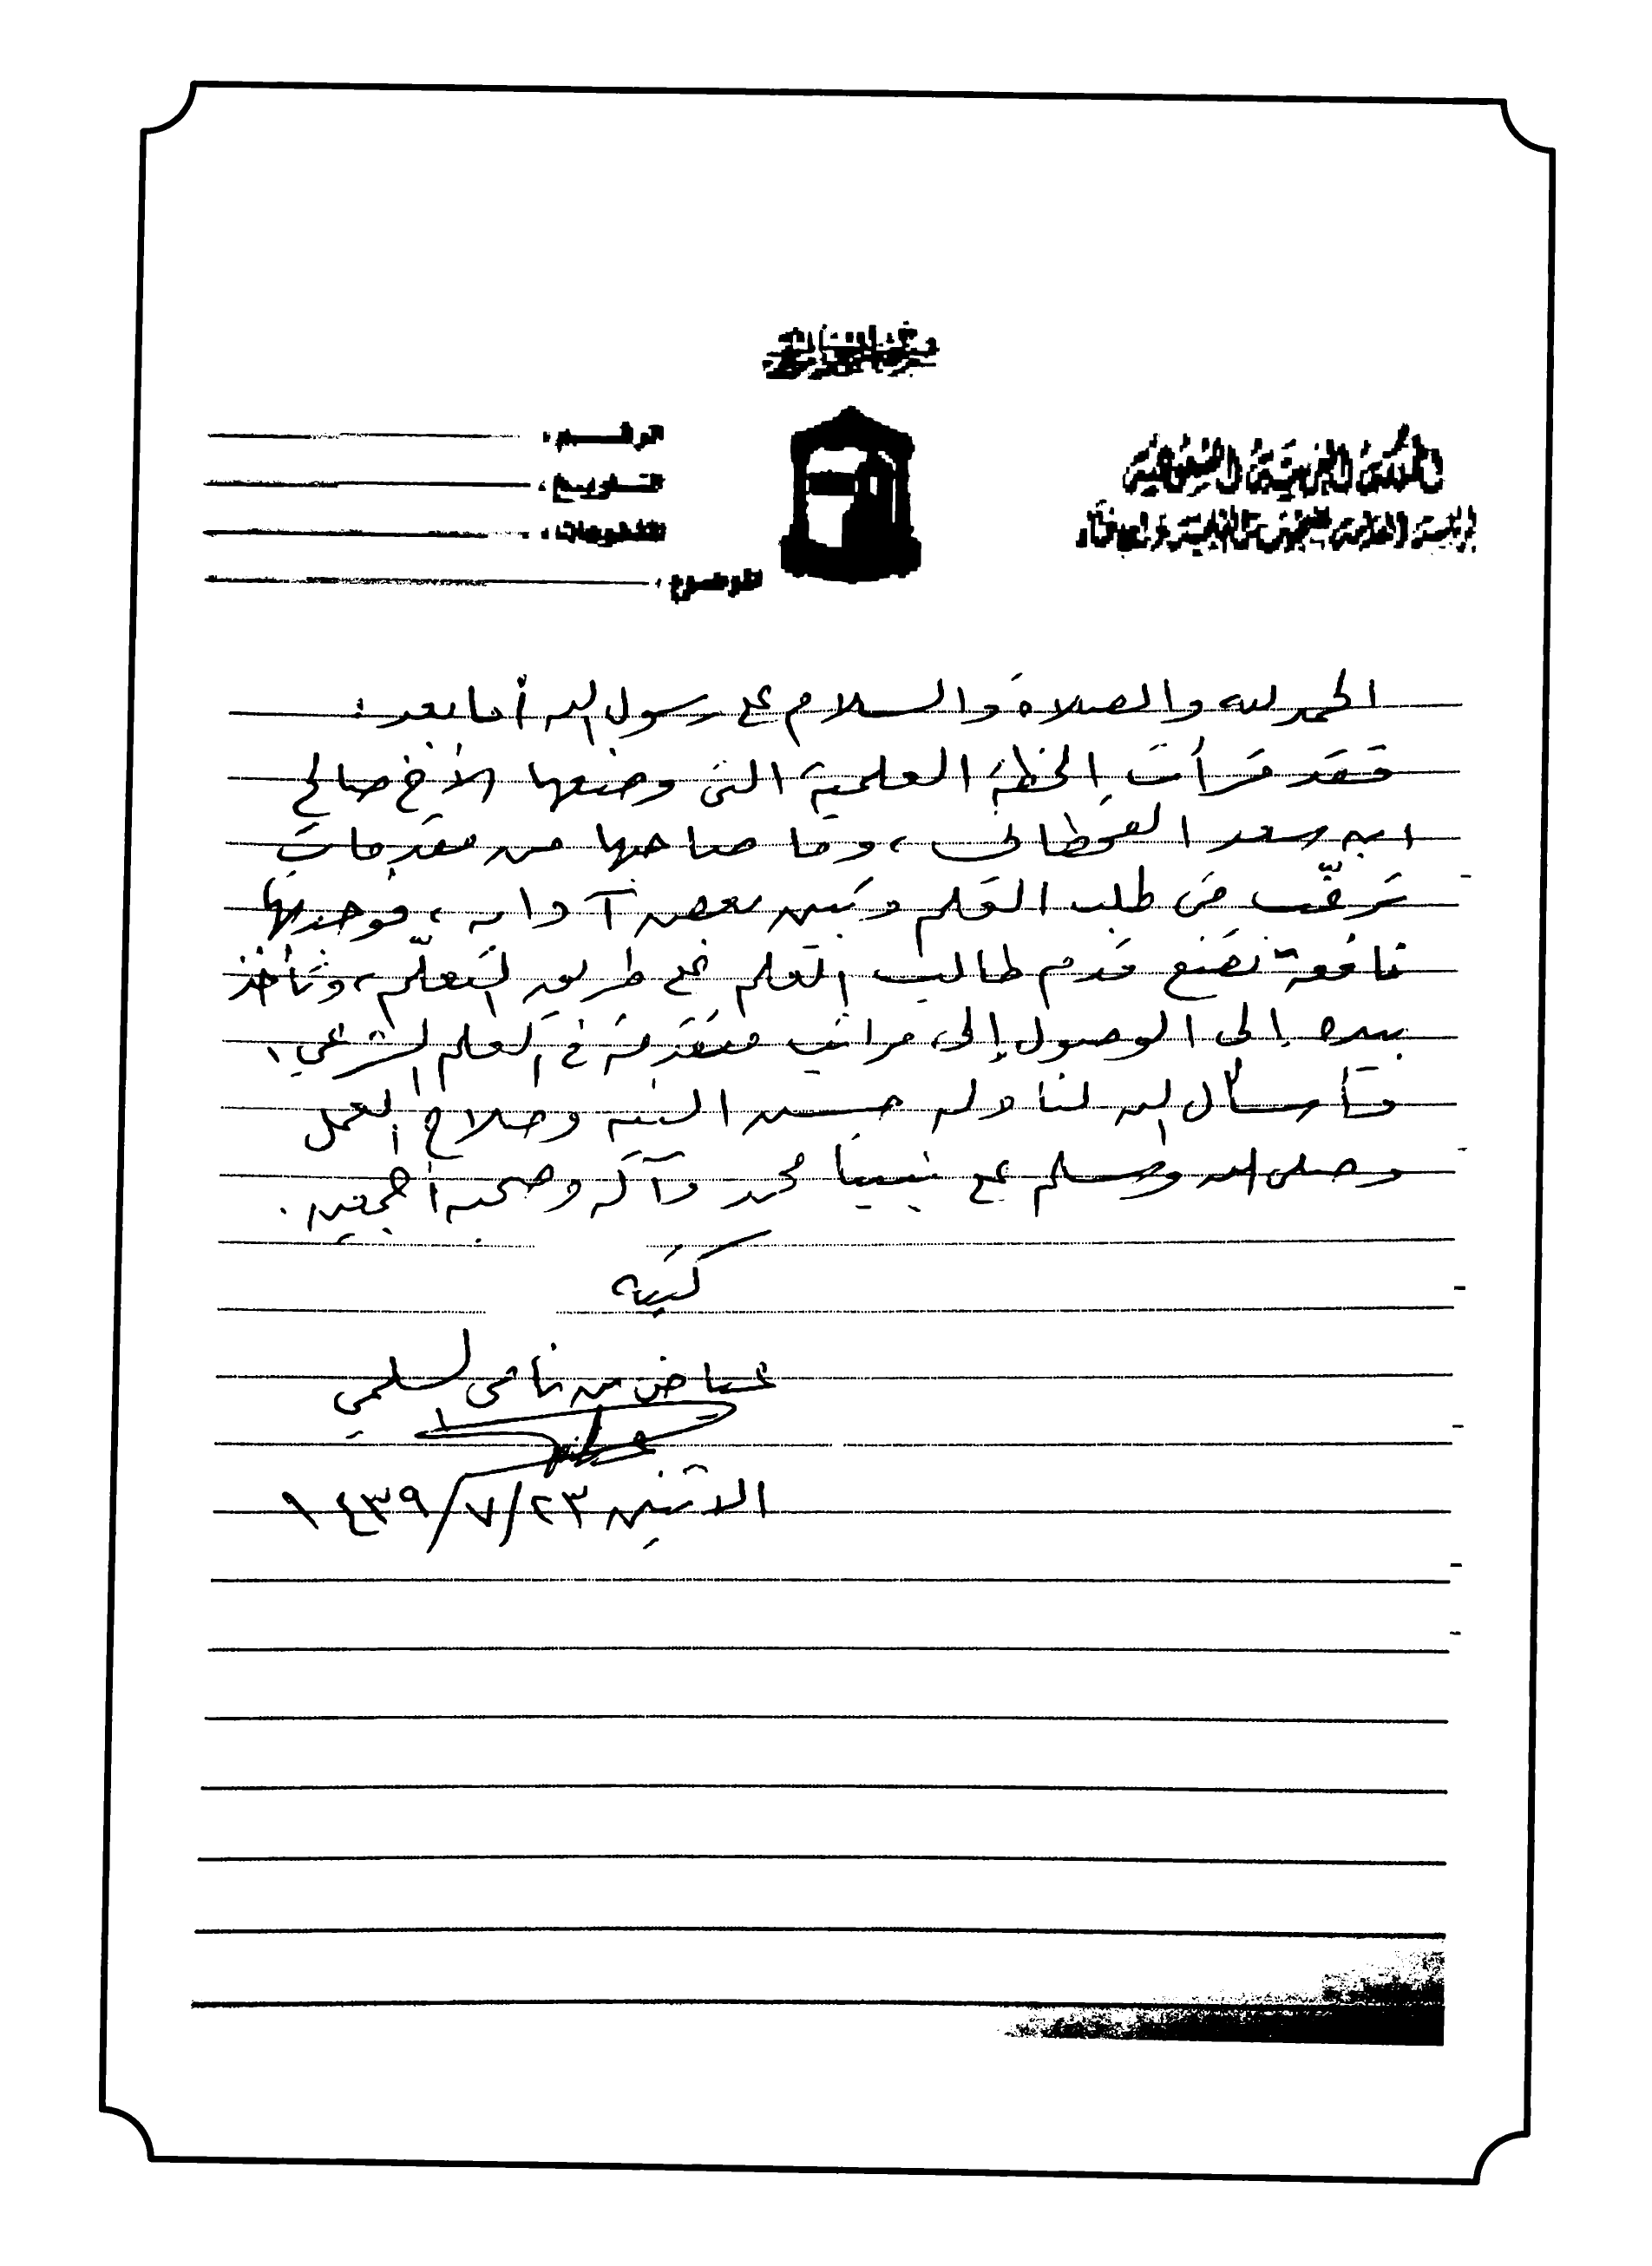 المملكة العربية السعودية
الرئاسة العامة
الرقـــم :
التـاريـخ :
المشفوعات :
الموضوع :
الحمد لله والصلاة والسلام على رسول الله أما بعد :
فقد قرأت الخطة العلمية التي وضعها الأخ صالح
ابن سعد القحطاني ، وما صاحبها من مقدمات
ترغّب في طلب العلم وتبين بعض آدابه ، فوجدتها
نافعة تضع قدم طالب العلم على طريق التعلّم ، وتأخذ
بيده إلى الوصول إلى مراتب متقدمة في العلم الشرعي ،
وأسأل الله لنا وله حسن النية وصلاح العمل
وصلى الله وسلم على نبينا محمد وآله وصحبه أجمعين .
كتبه
عياض بن نامي السلمي
الاثنين ٢٣/٧/١٤٣٩